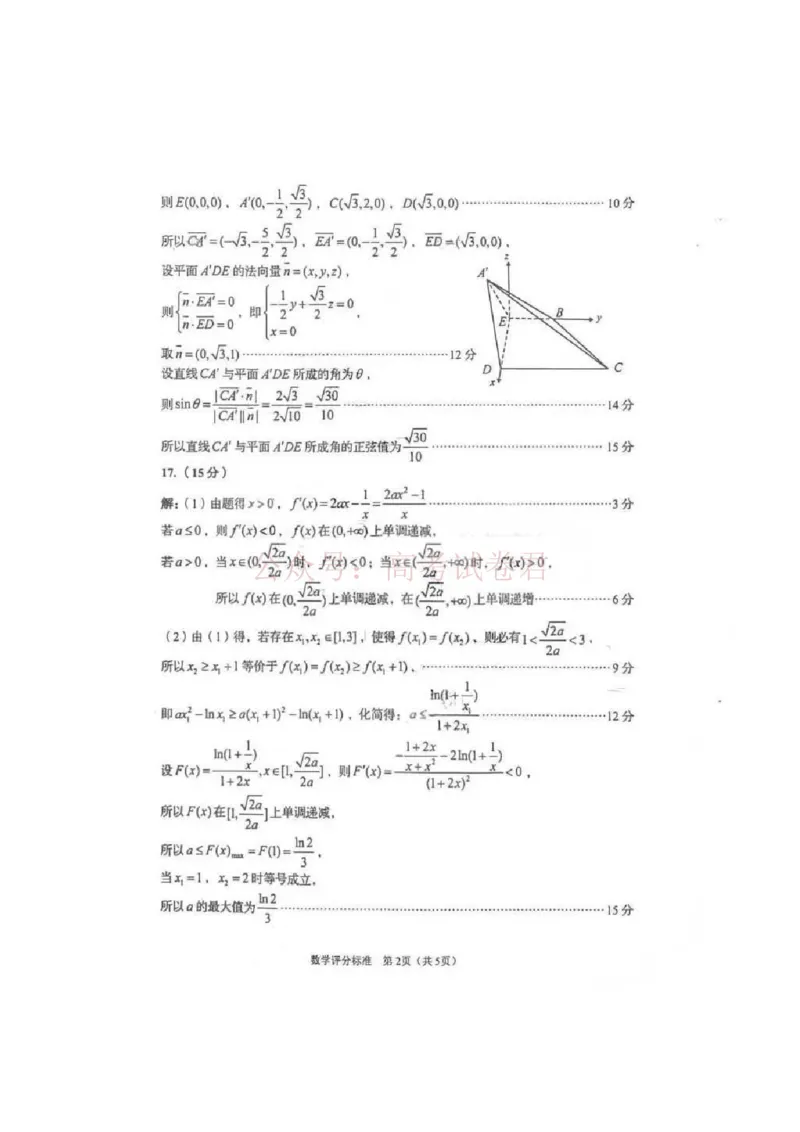 则E(0,0,0)，A'(0,-1/2,√3/2)，C(√3,2,0)，D(√3,0,0)……10分
所以CA'=(-√3,-5/2,√3/2)，EA'=(0,-1/2,√3/2)，ED=(√3,0,0)，
设平面A'DE的法向量n=(x,y,z)，
则{n·EA'=0, n·ED=0，即{-1/2y+√3/2z=0, x=0，
取n=(0,√3,1)……12分
z
A'
E
B
y
D
C
x
设直线CA'与平面A'DE所成的角为θ，
则sinθ=|CA'·n|/|CA'||n|=2√3/2√10=√30/10……14分
所以直线CA'与平面A'DE所成角的正弦值为√30/10……15分
17.（15分）
解:（1）由题得x>0，f'(x)=2ax-1/x=(2ax²-1)/x……3分
若a≤0，则f'(x)<0，f(x)在(0,+∞)上单调递减，
若a>0，当x∈(0,√2a/2a)时，f'(x)<0；当x∈(√2a/2a,+∞)时，f'(x)>0，
公众号：高考试卷君
所以f(x)在(0,√2a/2a)上单调递减，在(√2a/2a,+∞)上单调递增……6分
（2）由（1）得，若存在x₁,x₂∈[1,3]，使得f(x₁)=f(x₂)、则必有1<√2a/2a<3，
所以x₂≥x₁+1等价于f(x₁)=f(x₂)≥f(x₁+1)、……9分
即ax₁²-lnx₁≥a(x₁+1)²-ln(x₁+1)，化简得：a≤ln(1+1/x₁)/(1+2x₁)……12分
设F(x)=ln(1+1/x)/(1+2x),x∈[1,√2a/2a]，则F'(x)=(-(1+2x)/(x+x²)-2ln(1+1/x))/(1+2x)²<0，
所以F(x)在[1,√2a/2a]上单调递减，
所以a≤F(x)max=F(1)=ln2/3，
当x₁=1，x₂=2时等号成立，
所以a的最大值为ln2/3……15分
数学评分标准 第2页（共5页）